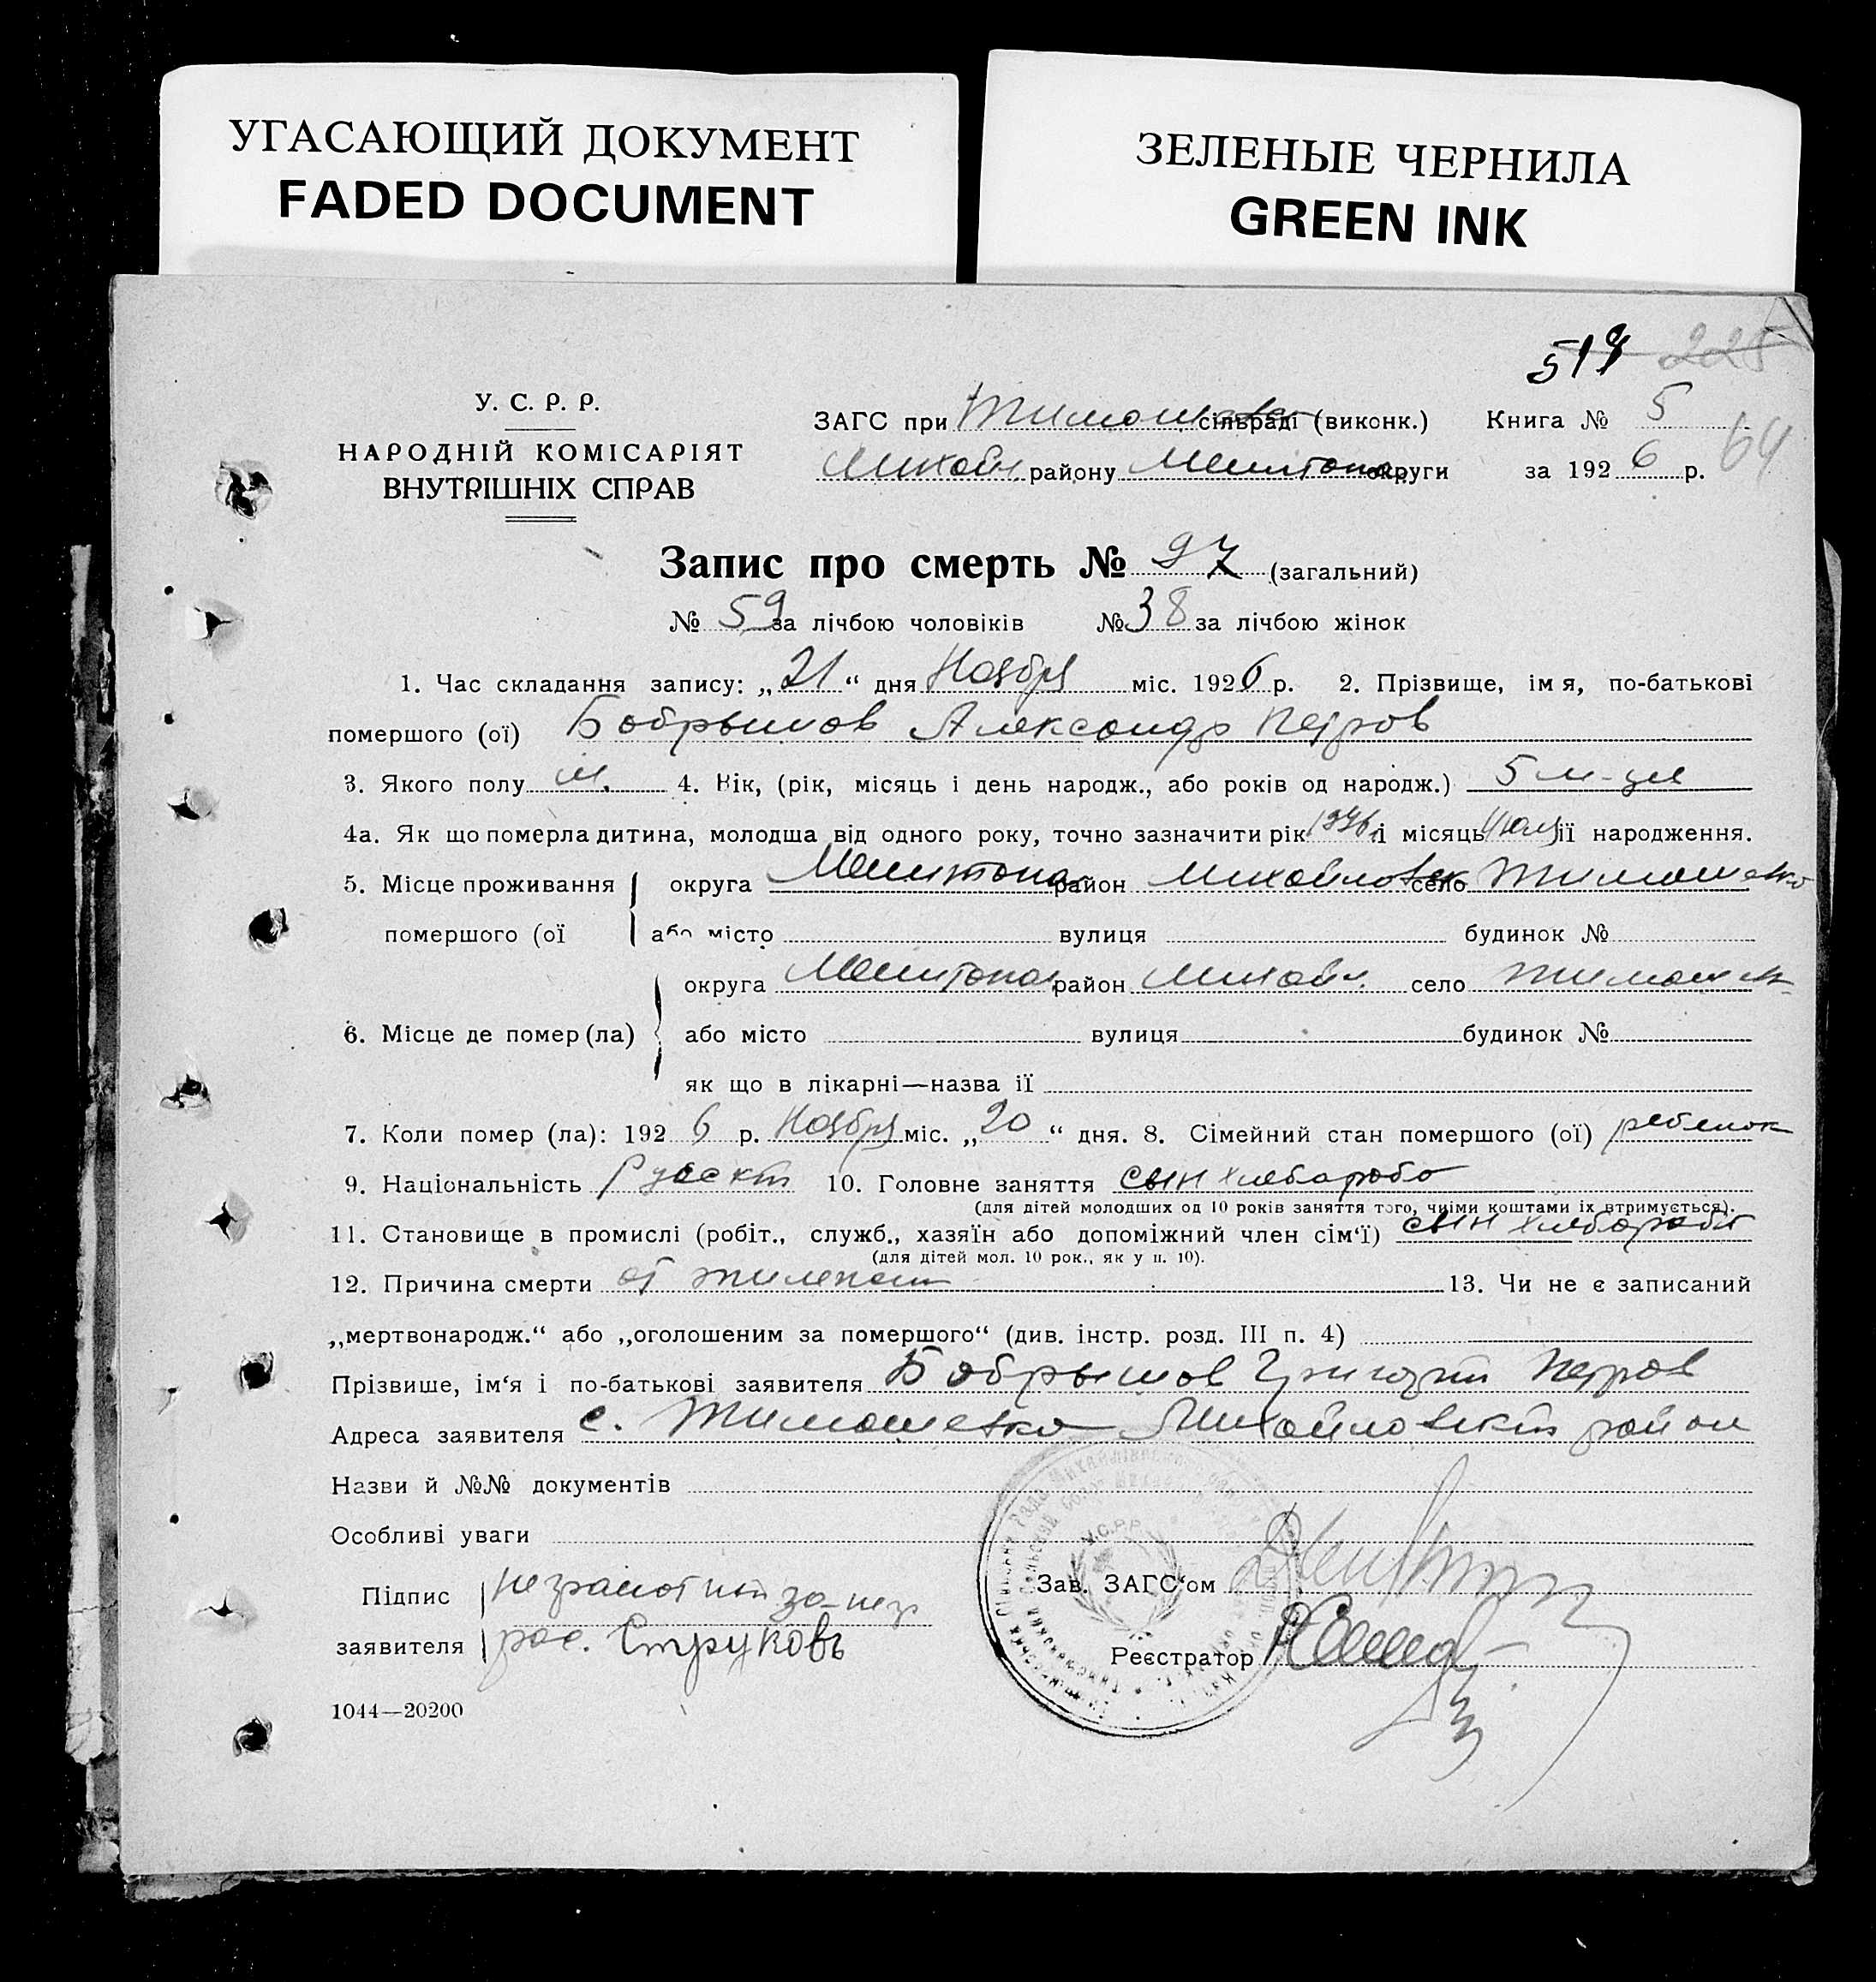 УГАСАЮЩИЙ ДОКУМЕНТ
FADED DOCUMENT
ЗЕЛЕНЫЕ ЧЕРНИЛА
GREEN INK
517 225
У. С. Р. Р.
НАРОДНІЙ КОМІСАРІЯТ
ВНУТРІШНІХ СПРАВ
ЗАГС при Тимошев сільраді (виконк.) Книга № 5
64
Михайл. району Мелитопол округи за 1926 р.
Запис про смерть № 97 (загальний)
№ 59 за лічбою чоловіків № 38 за лічбою жінок
1. Час складання запису: „21“ дня Ноября міс. 1926 р. 2. Прізвище, імя, по-батькові
помершого (ої) Бобрышов Александр Петров
3. Якого полу м. 4. Вік, (рік, місяць і день народж., або років од народж.) 5 м-це
4а. Як що померла дитина, молодша від одного року, точно зазначити рік 1926 і місяць Июля її народження.
5. Місце проживання округа Мелитопол район Михайловск село Тимошевка
помершого (ої або місто вулиця будинок №
округа Мелитопол район Михайл. село Тимошев
6. Місце де помер (ла) або місто вулиця будинок №
як що в лікарні—назва її
7. Коли помер (ла): 1926 р. Ноября міс. „20“ дня. 8. Сімейний стан помершого (ої) ребенок
9. Національність Русскт 10. Головне заняття сын хлебороба
(для дітей молодших од 10 років заняття того, чиїми коштами їх втримується).
11. Становище в промислі (робіт., служб., хазяїн або допоміжний член сім‘ї) сын хлебороба
(для дітей мол. 10 рок., як у п. 10).
12. Причина смерти от 13. Чи не є записаний
„мертвонародж.“ або „оголошеним за помершого“ (див. інстр. розд. III п. 4)
Прізвише, ім‘я і по-батькові заявителя Бобрышов Григорий Петров
Адреса заявителя с. Тимошевка Михайловский район
Назви й №№ документів
Особливі уваги
Підпис неграмотный за нег
заявителя рас. Струковъ
У.С.Р.Р.
Зав. ЗАГС‘ом
Реєстратор
1044—20200